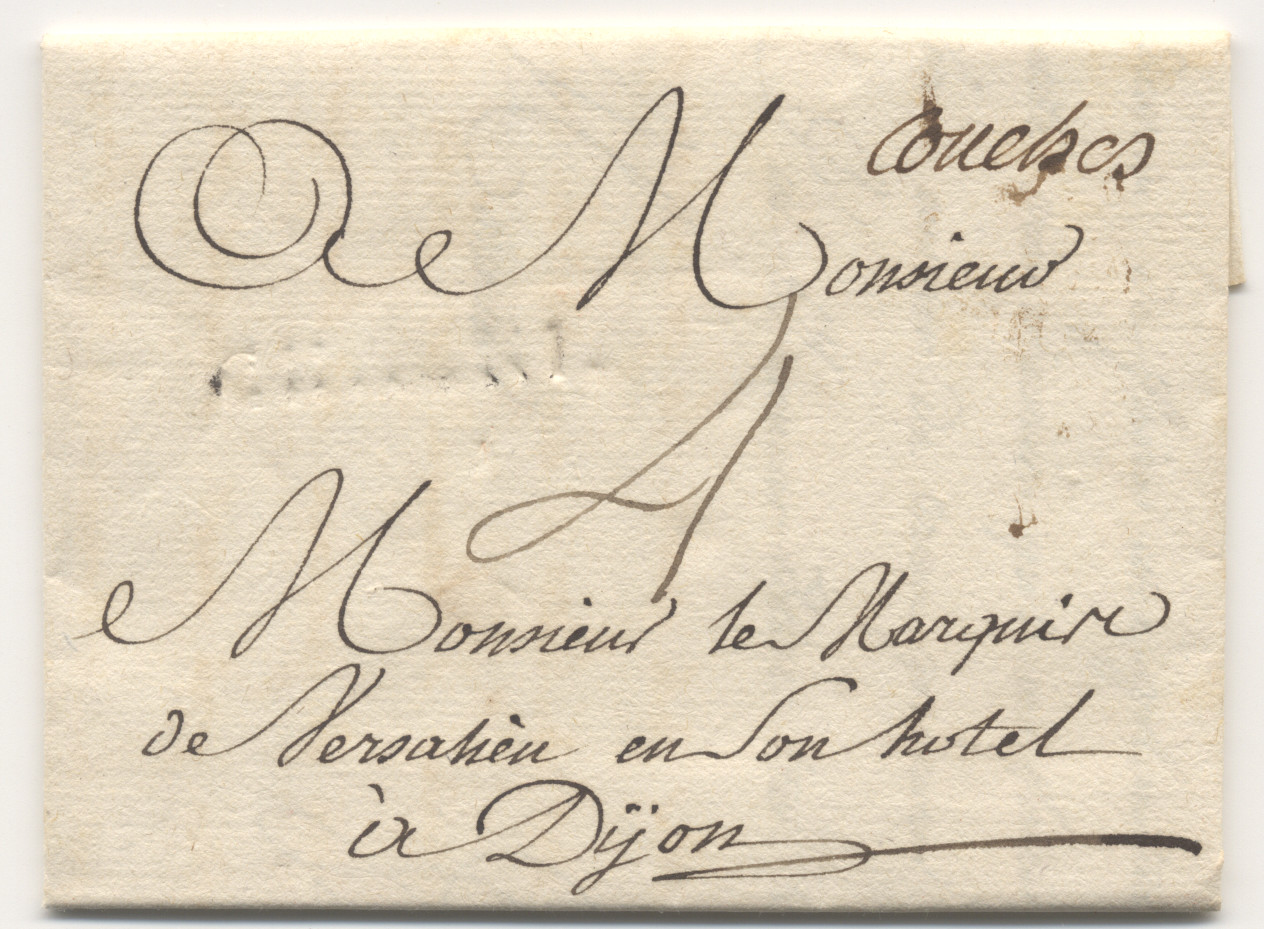 Couches
A Monsieur
4
Monsieur le Marquire
de Versalieu en Son hotel
à Dijon